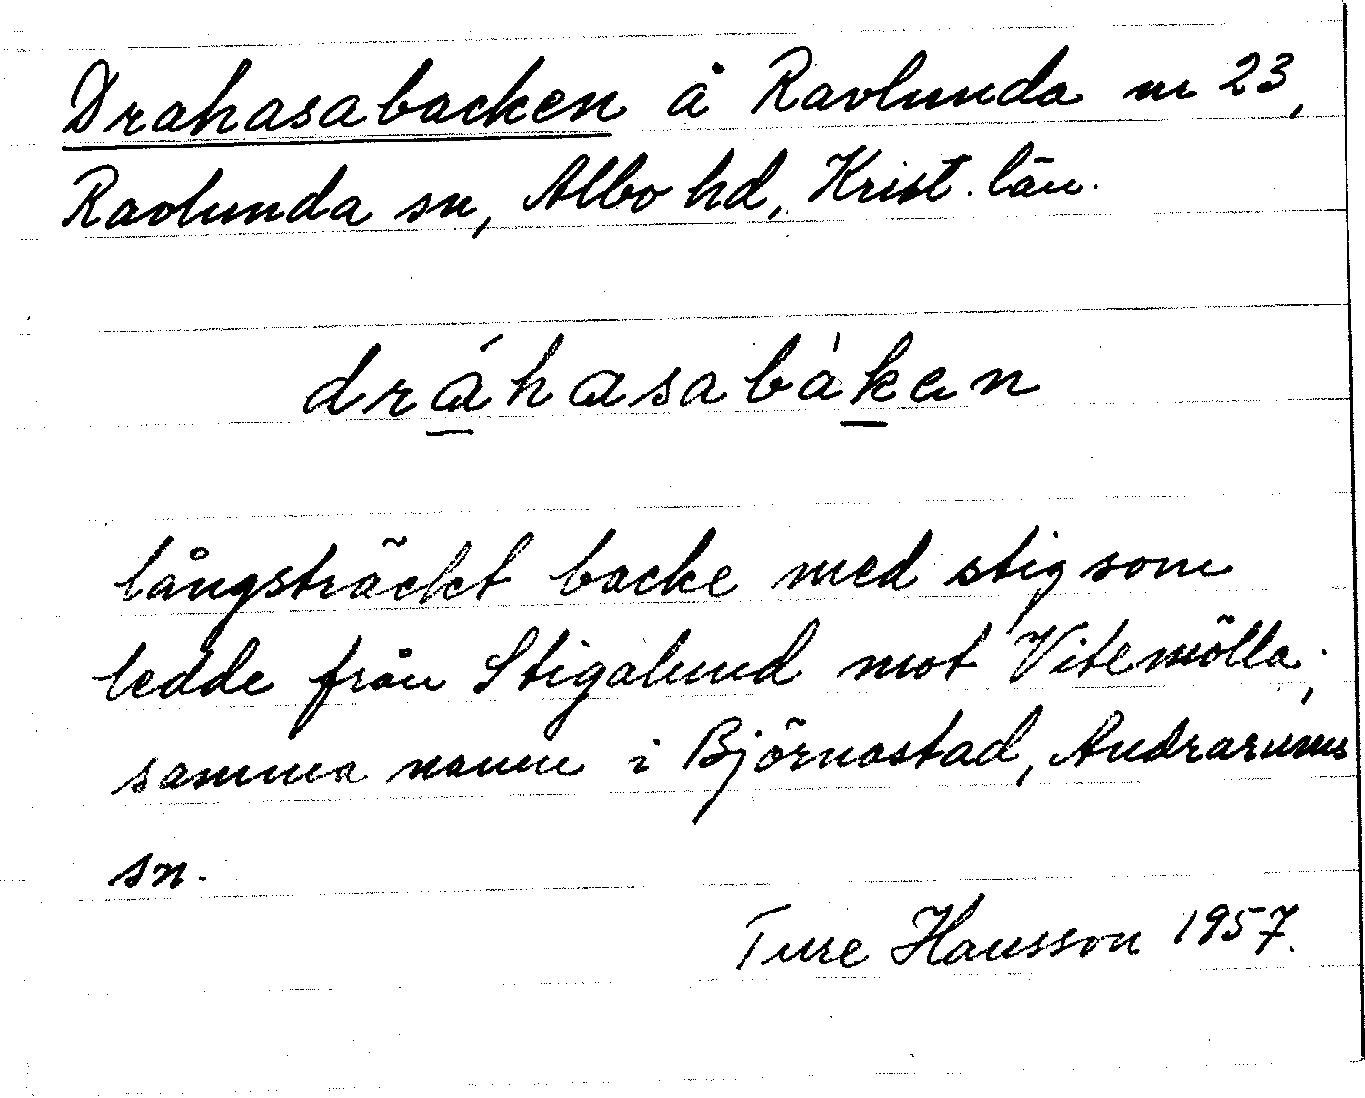 Drahasabacken å Ravlunda nr 23,
Ravlunda sn, Albo hd, Krist. län.
dráhasabàken
långsträckt backe med stig som
ledde från Stigalund mot Vitemölla;
samma namn i Björnastad, Andrarums
sn.
Ture Hansson 1957.